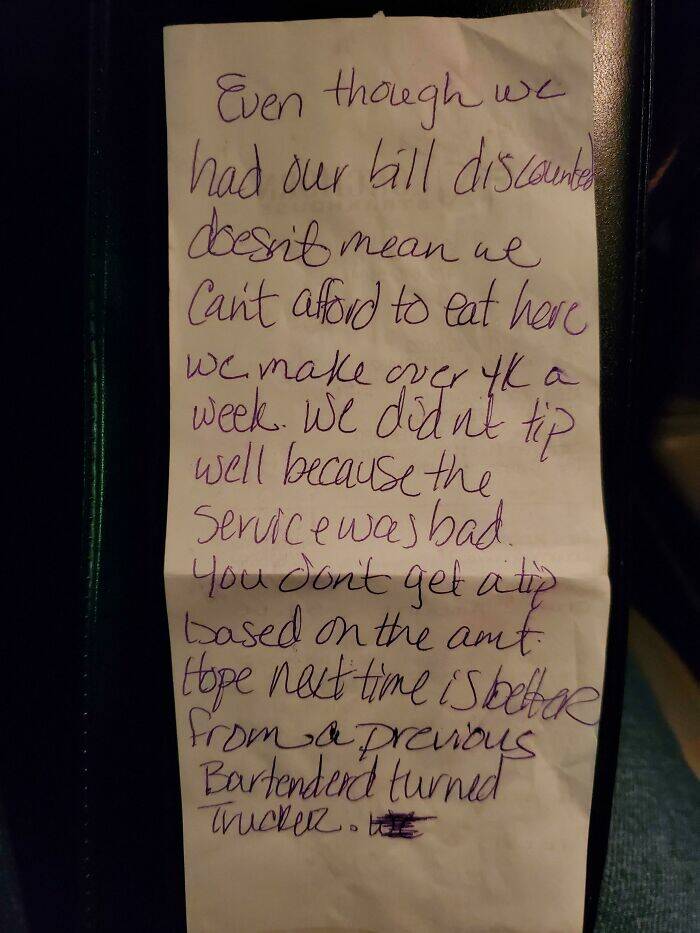 Even though we
had our bill discounted
doesn't mean we
Can't afford to eat here
we make over 4K a
week. We didn't tip
well because the
service was bad.
You don't get a tip
based on the amt.
Hope next time is better
from a previous
Bartenderd turned
Trucker.